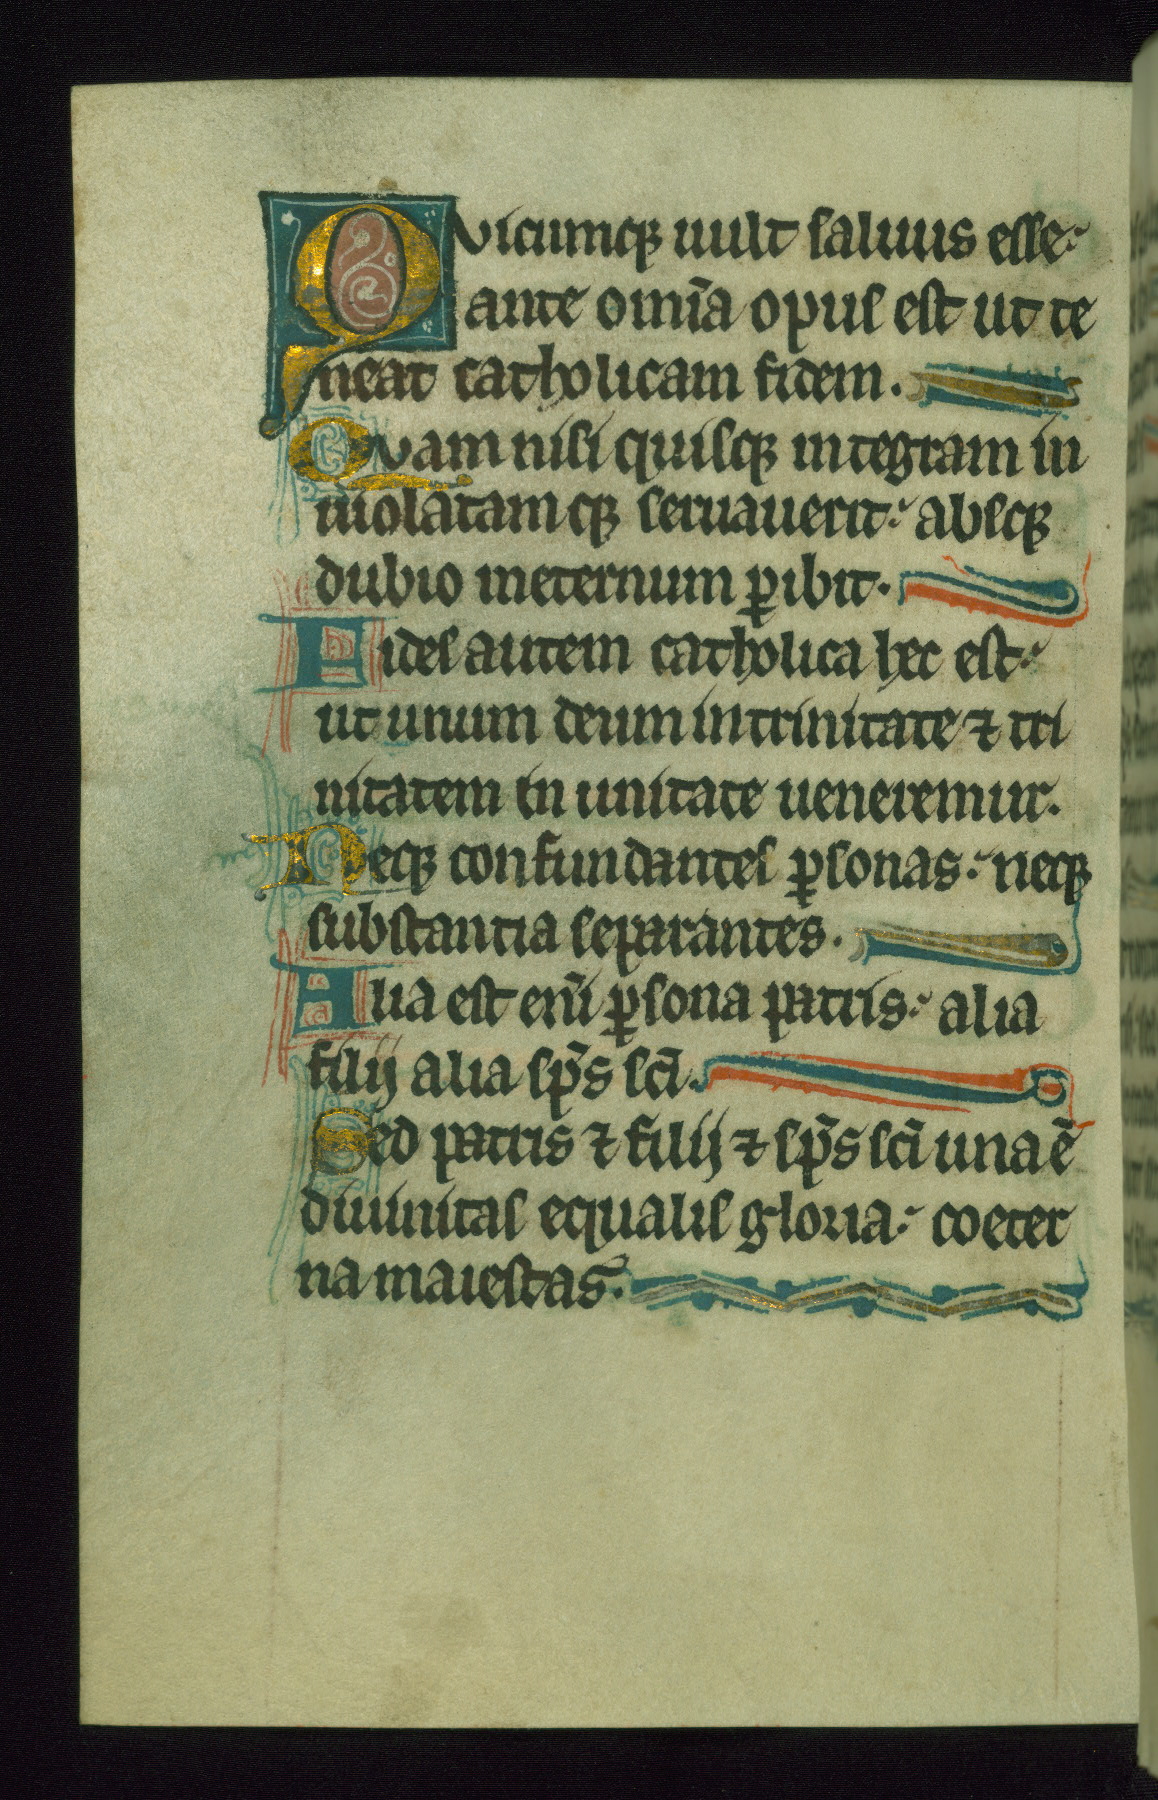 Quicumqꝫ uult saluus esse
ante om̄ia opus est ut te
neat catholicam fidem.
Quam nisi quisqꝫ integram in
uiolatamqꝫ seruauerit absqꝫ
dubio ineternum ꝑibit.
Fides autem catholica hec est
ut unum deum in trinitate ⁊ tri
nitatem in unitate ueneremur.
Neqꝫ confundantes ꝑsonas neqꝫ
substantia separantes.
Alia est eni̅ ꝑsona patris alia
filij alia sp̄s sc̄i.
Sed patris ⁊ filij ⁊ sp̄s sc̄i una ē
diuinitas equalis gloria coeter
na maiestas.